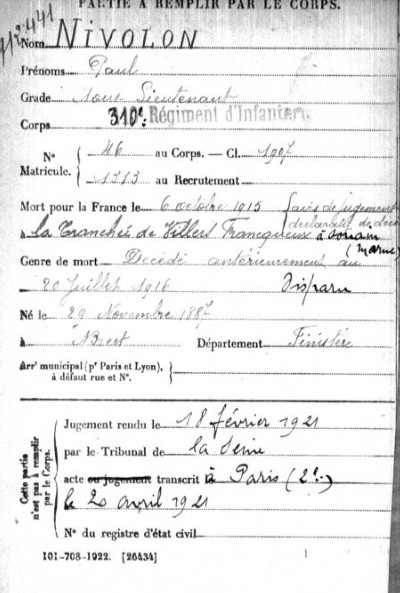 PARTIE À REMPLIR PAR LE CORPS.
Nom NIVOLON
Prénoms Paul
Grade Sous Lieutenant
Corps 310e Régiment d'Infanterie
N° Matricule. { 46 au Corps. — Cl. 1907
1313 au Recrutement
Mort pour la France le 6 octobre 1915 (avis de jugement
déclaratif de décès
à la tranchée de Villers Franqueux à
(Marne)
Genre de mort Décédé antérieurement au
20 Juillet 1916 Disparu
Né le 29 Novembre 1887
à Brest Département Finistère
Arrt municipal (pr Paris et Lyon),
à défaut rue et N°.
Cette partie
n'est pas à remplir
par le Corps.
Jugement rendu le 18 février 1921
par le Tribunal de la Seine
acte ou jugement transcrit à Paris (2e)
le 20 avril 1921
N° du registre d'état civil
101-708-1922. [26434]